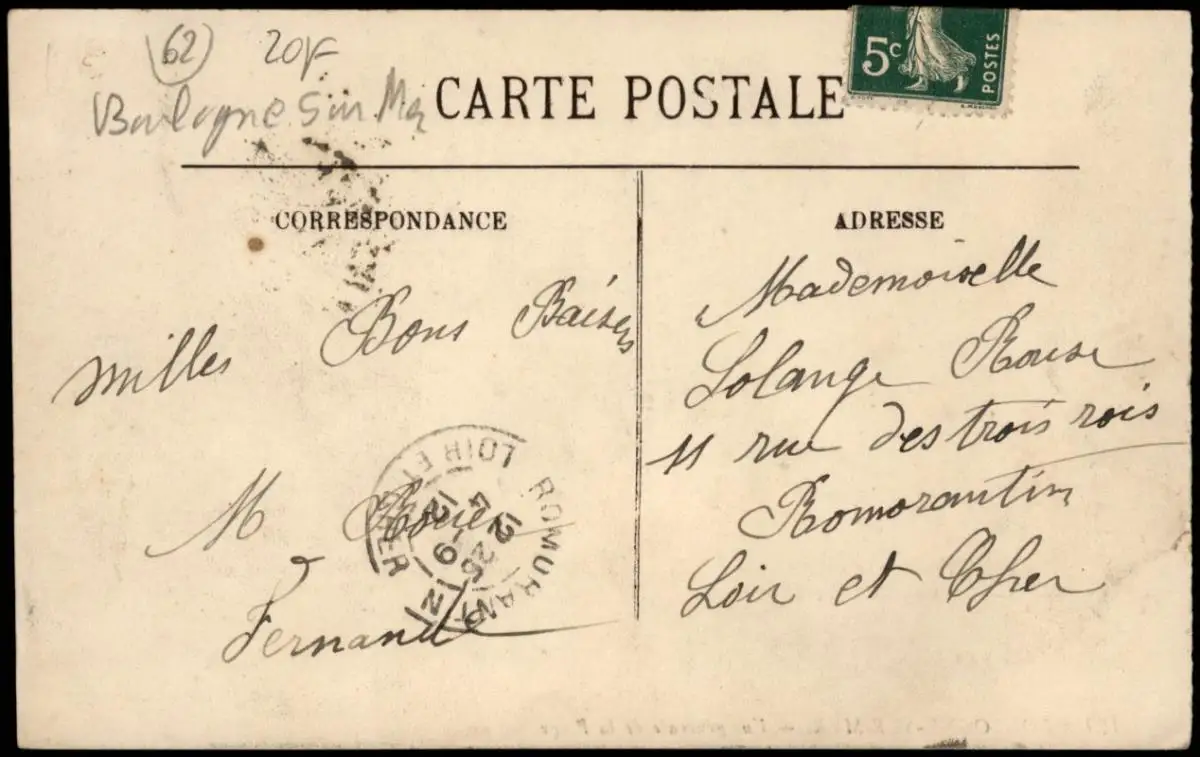 62 20F
Boulogne Sur Mer
CARTE POSTALE
5c POSTES
CORRESPONDANCE
ADRESSE
milles Bons Baisers
M
Fernand
Mademoiselle
Solange
11 rue des trois rois
Romorantin
Loir et Cher
ROMORANTIN
LOIR ET CHER
26 - 9
12